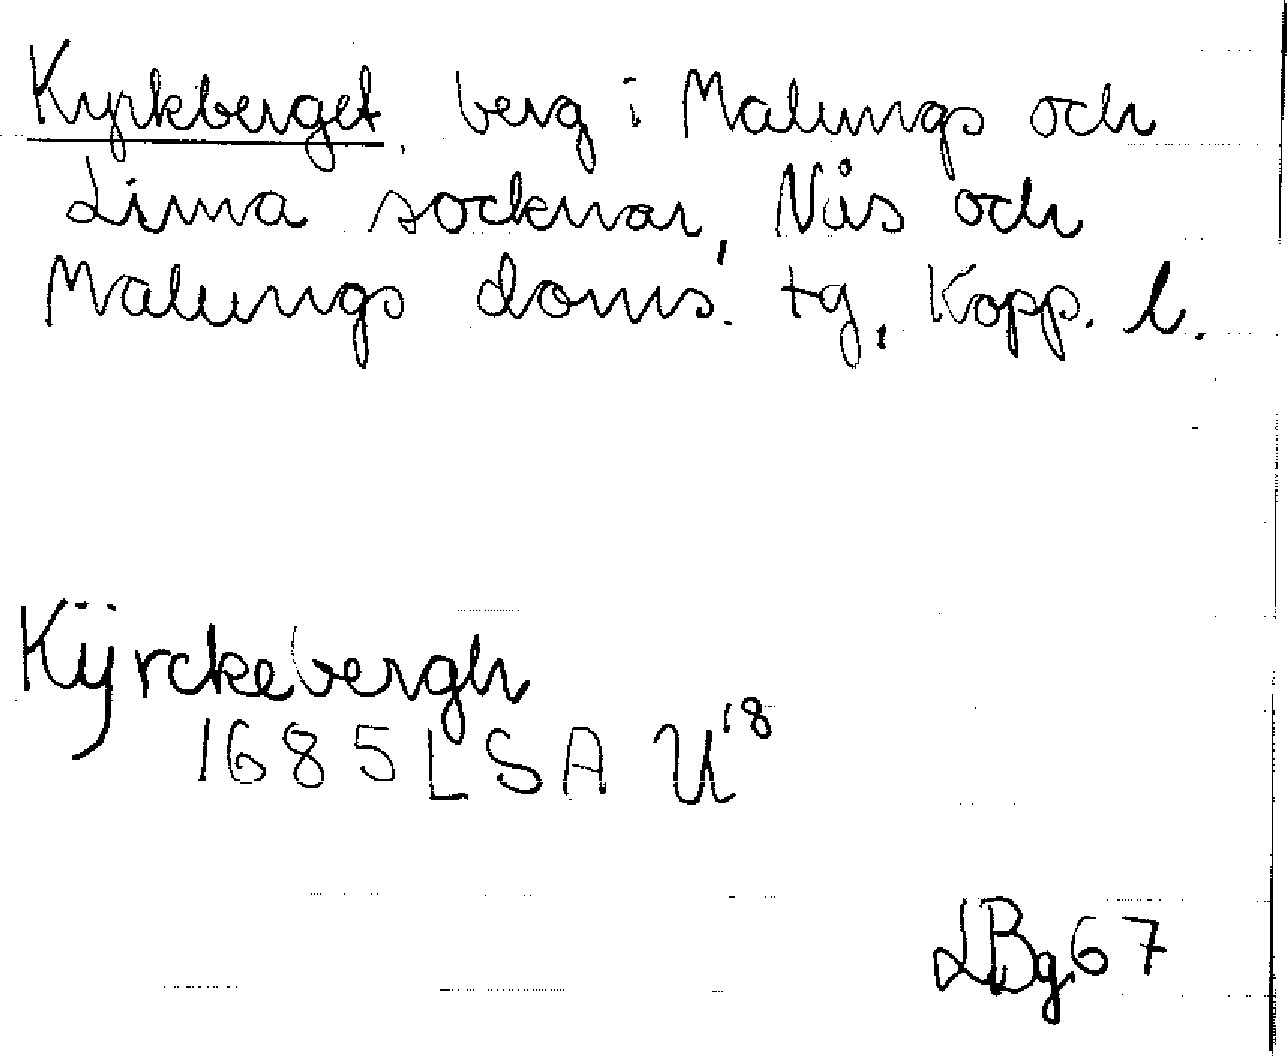 Kyrkberget, berg i Malungs och
Lima socknar, Nås och
Malungs doms. tg, Kopp. l.
Kÿrckebergh
1685 LSA U18
LBg 67